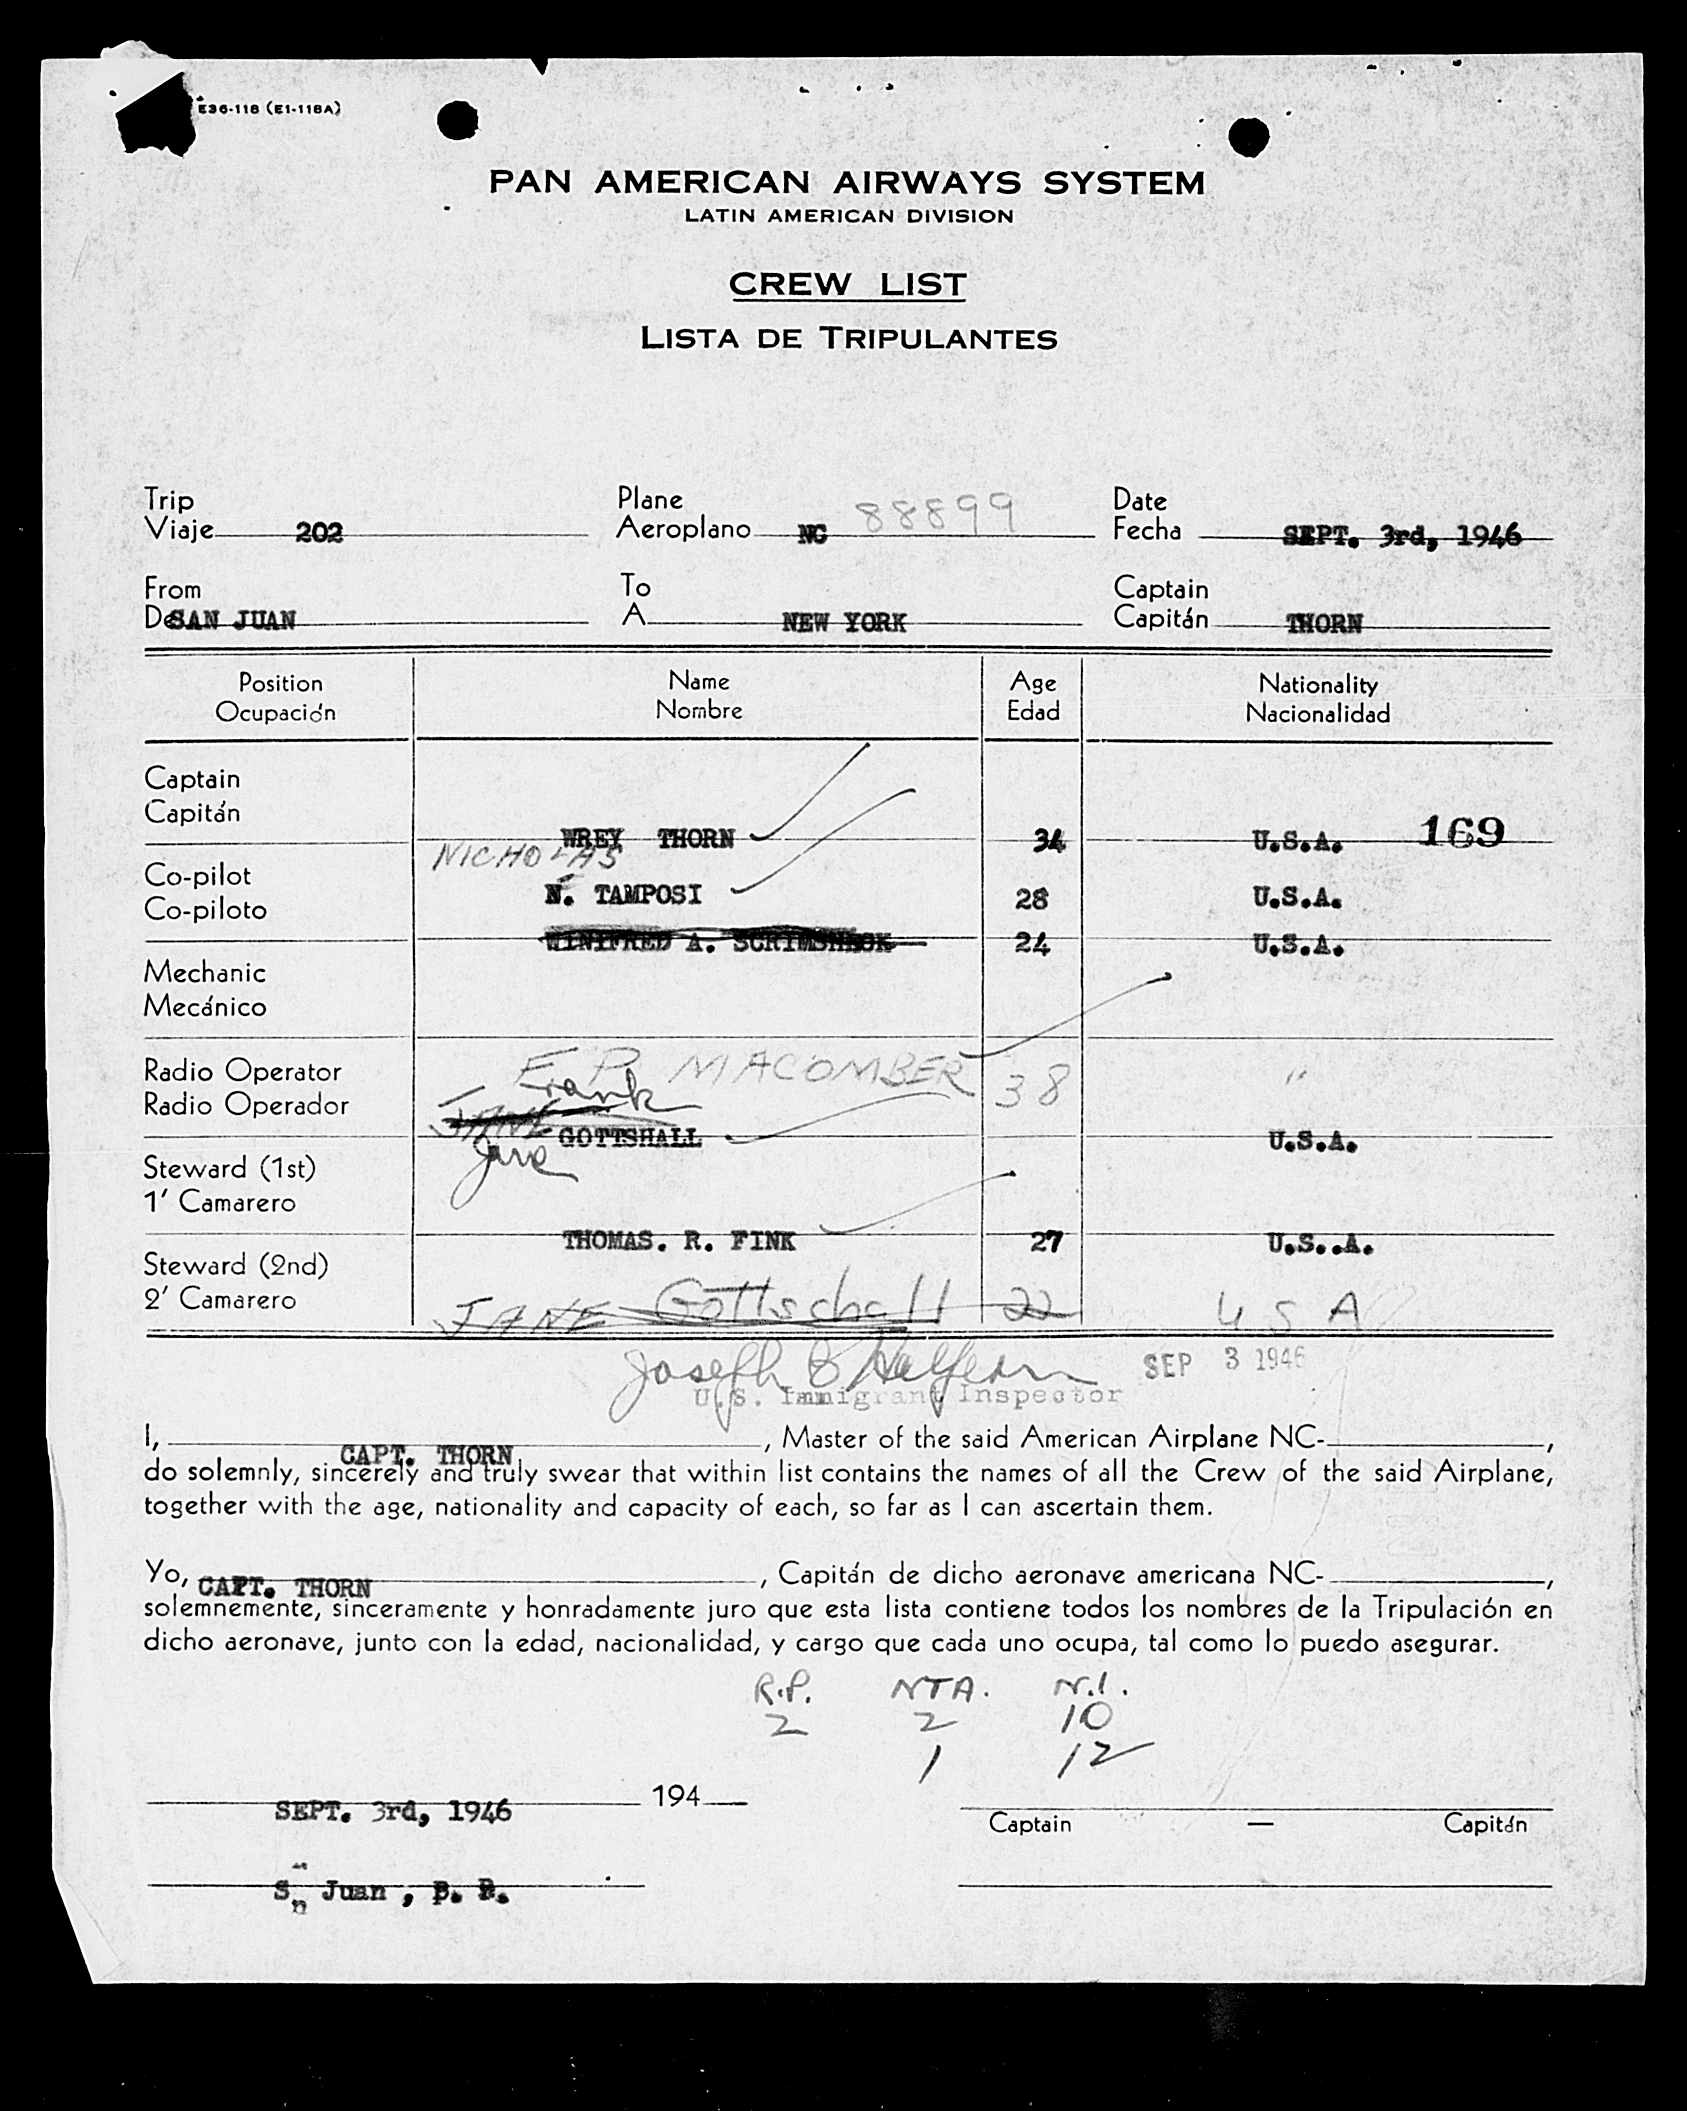 E36-118 (E1-118A)
PAN AMERICAN AIRWAYS SYSTEM
LATIN AMERICAN DIVISION
CREW LIST
LISTA DE TRIPULANTES
Trip Plane Date
Viaje 202 Aeroplano NC 88899 Fecha SEPT. 3rd, 1946
From To Captain
De SAN JUAN A NEW YORK Capitán THORN
Position Name Age Nationality
Ocupación Nombre Edad Nacionalidad
Captain
Capitán
WREY THORN 34 U.S.A. 169
NICHOLAS
Co-pilot
N. TAMPOSI 28 U.S.A.
Co-piloto
WINIFRED A. 24 U.S.A.
Mechanic
Mecánico
Radio Operator F P MACOMBER 38 "
Frank
Radio Operador
JANE GOTTSHALL U.S.A.
Jane
Steward (1st)
1' Camarero
THOMAS. R. FINK 27 U.S..A.
Steward (2nd)
2' Camarero JANE Gottschall 22 U S A
Joseph B Halfern SEP 3 1946
U.S. Immigrant Inspector
I, CAPT. THORN, Master of the said American Airplane NC-,
do solemnly, sincerely and truly swear that within list contains the names of all the Crew of the said Airplane,
together with the age, nationality and capacity of each, so far as I can ascertain them.
Yo, CAPT. THORN, Capitán de dicho aeronave americana NC-,
solemnemente, sinceramente y honradamente juro que esta lista contiene todos los nombres de la Tripulación en
dicho aeronave, junto con la edad, nacionalidad, y cargo que cada uno ocupa, tal como lo puedo asegurar.
R.P. NTA. N.I.
2 2 10
1 12
SEPT. 3rd, 1946 194
Captain — Capitán
Sn Juan , P. R.